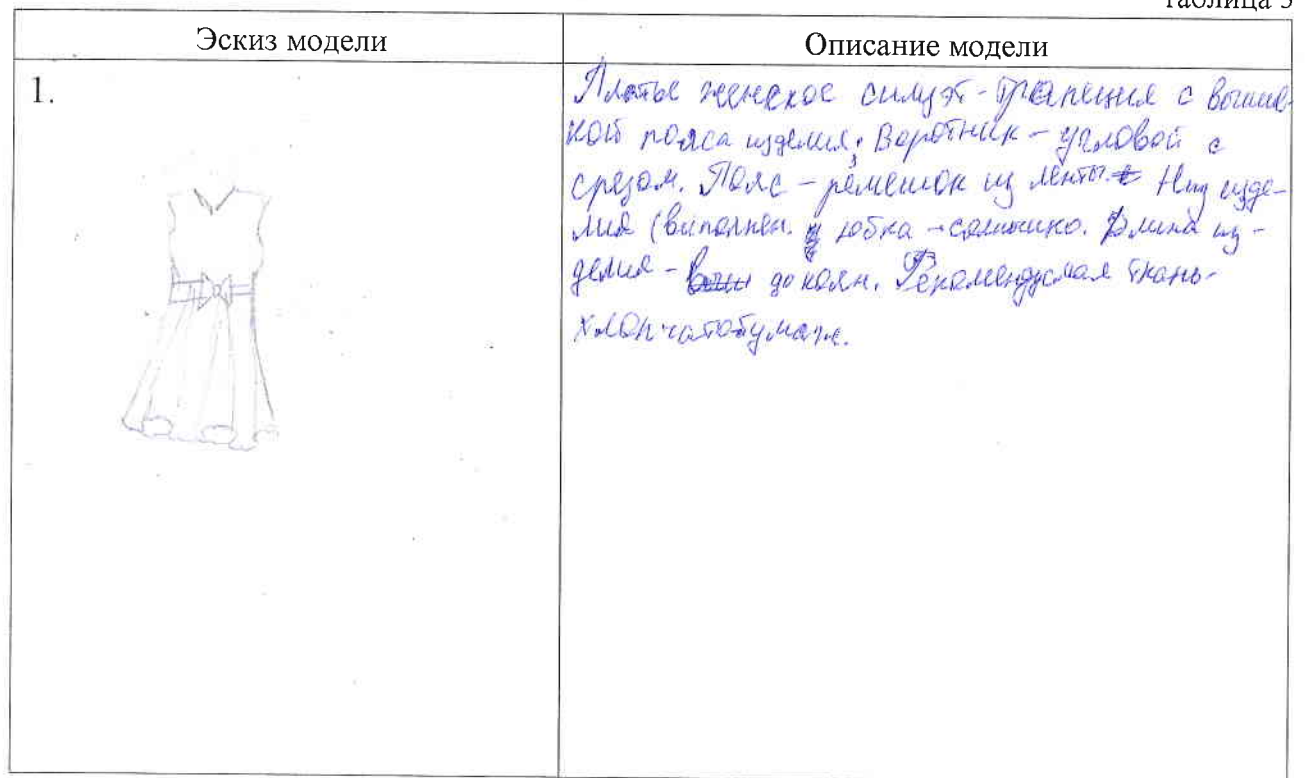 Таблица 3
Эскиз модели
Описание модели
1.
Платье женское силуэт-трапеция с вышив-
кой пояса изделия, Воротник - угловой с
срезом. Пояс - ремешок из ленты. Низ изде-
лия (выполнен. юбка - солнцико. Длина из-
делия - до колен. Рекомендуемая ткань-
хлопчатобумаж.